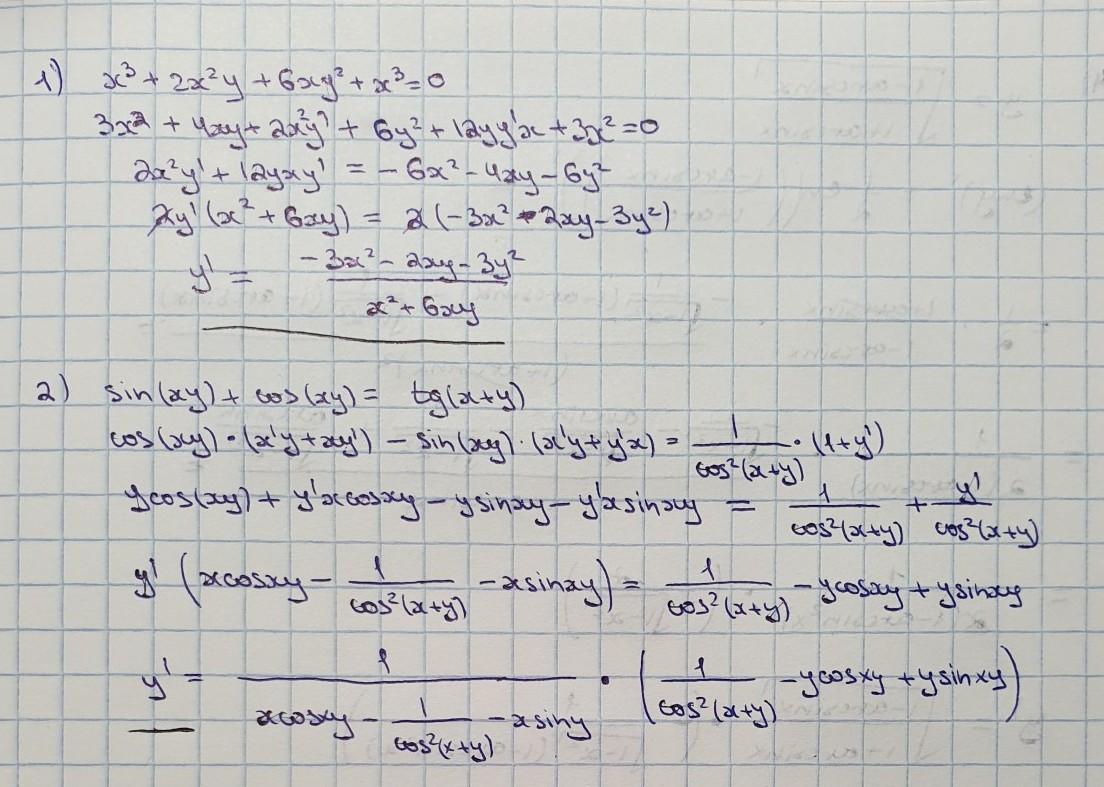 1) x³ + 2x²y + 6xy² + x³ = 0
3x² + 4xy + 2x²y' + 6y² + 12yy'x + 3x² = 0
2x²y' + 12yxy' = -6x² - 4xy - 6y²
2y'(x² + 6xy) = 2(-3x² - 2xy - 3y²)
y' = (-3x² - 2xy - 3y²) / (x² + 6xy)
2) sin(xy) + cos(xy) = tg(x+y)
cos(xy)·(x'y + xy') - sin(xy)·(x'y + y'x) = 1/cos²(x+y) · (1+y')
ycos(xy) + y'xcosxy - ysinxy - y'xsinxy = 1/cos²(x+y) + y'/cos²(x+y)
y' (xcosxy - 1/cos²(x+y) - xsinxy) = 1/cos²(x+y) - ycosxy + ysinxy
y' = 1/(xcosxy - 1/cos²(x+y) - xsiny) · (1/cos²(x+y) - ycosxy + ysinxy)